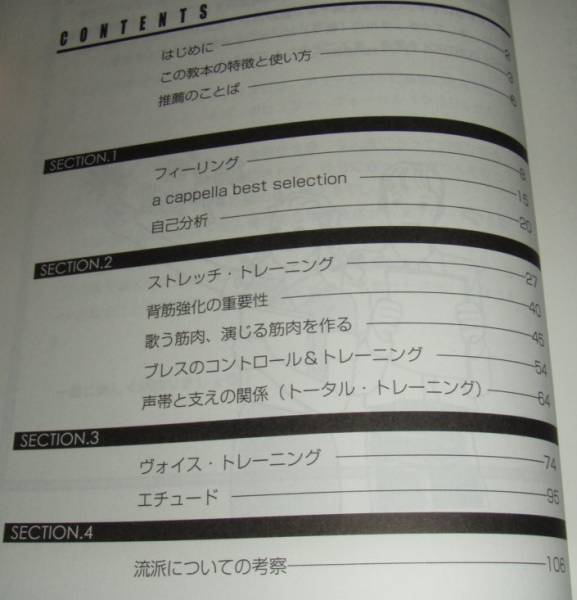 CONTENTS
はじめに 2
この教本の特徴と使い方 3
推薦のことば 6
SECTION.1
フィーリング 8
a cappella best selection 15
自己分析 20
SECTION.2
ストレッチ・トレーニング 27
背筋強化の重要性 40
歌う筋肉、演じる筋肉を作る 45
ブレスのコントロール＆トレーニング 54
声帯と支えの関係（トータル・トレーニング） 64
SECTION.3
ヴォイス・トレーニング 74
エチュード 95
SECTION.4
流派についての考察 106